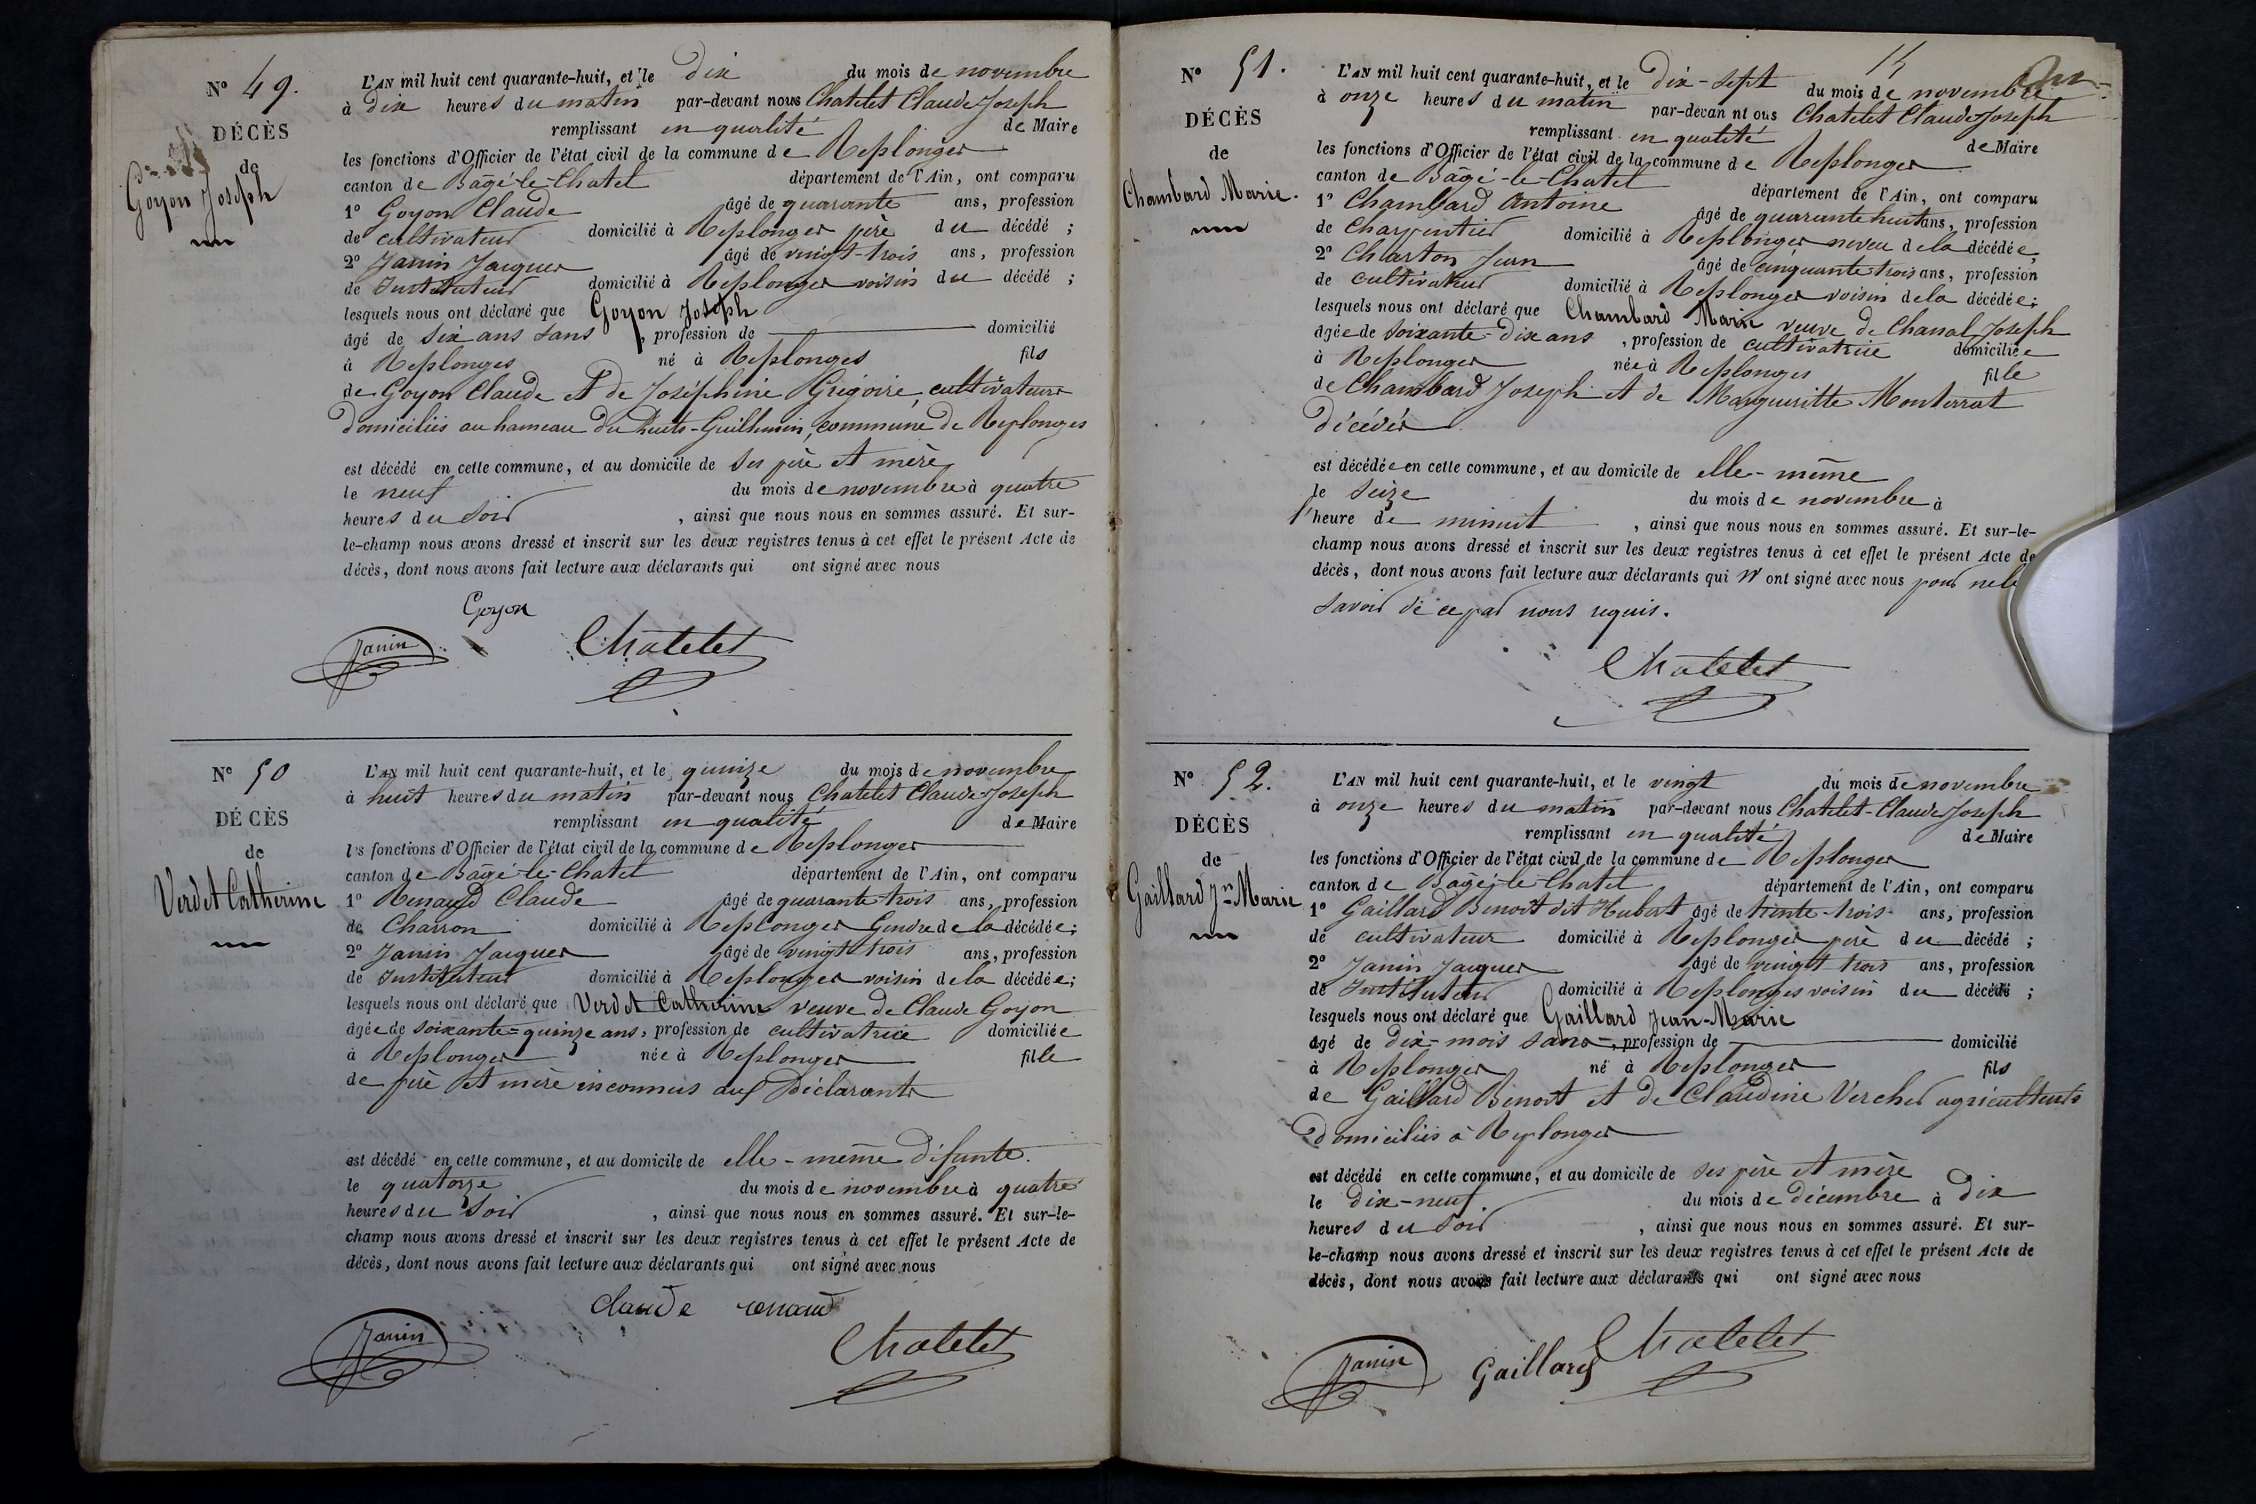 N° 49.
DÉCÈS
de
Goyon Joseph
L'AN mil huit cent quarante-huit, et le dix du mois de novembre
à dix heures du matin par-devant nous Chatelet Claude Joseph
remplissant en qualité de Maire
les fonctions d'Officier de l'état civil de la commune de Replonges
canton de Bâgé-le-Chatel département de l'Ain, ont comparu
1° Goyon Claude âgé de quarante ans, profession
de cultivateur domicilié à Replonges père du décédé ;
2° Janin Jacques âgé de vingt-trois ans, profession
de Instituteur domicilié à Replonges voisin du décédé ;
lesquels nous ont déclaré que Goyon Joseph
âgé de six ans sans , profession de domicilié
à Replonges né à Replonges fils
de Goyon Claude et de Joséphine Grégoire, cultivateurs
domiciliés au hameau du Puits-Guillemin, commune de Replonges
est décédé en cette commune, et au domicile de ses père et mère
le neuf du mois de novembre à quatre
heures du soir , ainsi que nous nous en sommes assuré. Et sur-
le-champ nous avons dressé et inscrit sur les deux registres tenus à cet effet le présent Acte de
décès, dont nous avons fait lecture aux déclarants qui ont signé avec nous
Goyon
Janin Chatelet
N° 50
DÉCÈS
de
Verdet Catherine
L'AN mil huit cent quarante-huit, et le quinze du mois de novembre
à huit heures du matin par-devant nous Chatelet Claude-Joseph
remplissant en qualité de Maire
les fonctions d'Officier de l'état civil de la commune de Replonges
canton de Bâgé-le-Chatel département de l'Ain, ont comparu
1° Renaud Claude âgé de quarante-trois ans, profession
de Charron domicilié à Replonges Gendre de la décédée ;
2° Janin Jacques âgé de vingt-trois ans, profession
de Instituteur domicilié à Replonges voisin de la décédée ;
lesquels nous ont déclaré que Verdet Catherine veuve de Claude Goyon
âgée de soixante=quinze ans, profession de cultivatrice domiciliée
à Replonges née à Replonges fille
de père et mère inconnus aux Déclarants
est décédé en cette commune, et au domicile de elle-même défunte.
le quatorze du mois de novembre à quatre
heures du soir , ainsi que nous nous en sommes assuré. Et sur-le-
champ nous avons dressé et inscrit sur les deux registres tenus à cet effet le présent Acte de
décès, dont nous avons fait lecture aux déclarants qui ont signé avec nous
claude renaud
Janin Chatelet
14
N° 51.
DÉCÈS
de
Chambard Marie.
L'AN mil huit cent quarante-huit, et le dix-sept du mois de novembre
à onze heures du matin par-devan nt ous Chatelet Claude Joseph
remplissant en qualité de Maire
les fonctions d'Officier de l'état civil de la commune de Replonges
canton de Bâgé-le-Chatel département de l'Ain, ont comparu
1° Chambard Antoine âgé de quarante huit ans, profession
de Charpentier domicilié à Replonges neveu de la décédée ;
2° Charton Jean âgé de cinquante trois ans, profession
de cultivateur domicilié à Replonges voisin de la décédée ;
lesquels nous ont déclaré que Chambard Marie veuve de Chanal Joseph
âgée de soixante-dix ans , profession de cultivatrice domiciliée
à Replonges née à Replonges fille
de Chambard Joseph et de Marguerite Monterrat
décédés
est décédée en cette commune, et au domicile de elle-même
le seize du mois de novembre à
l'heure de minuit , ainsi que nous nous en sommes assuré. Et sur-le-
champ nous avons dressé et inscrit sur les deux registres tenus à cet effet le présent Acte de
décès, dont nous avons fait lecture aux déclarants qui n' ont signé avec nous pour ne le
savoir de ce par nous requis.
Chatelet
N° 52.
DÉCÈS
de
Gaillard Jn-Marie
L'AN mil huit cent quarante-huit, et le vingt du mois de novembre
à onze heures du matin par-devant nous Chatelet-Claude Joseph
remplissant en qualité de Maire
les fonctions d'Officier de l'état civil de la commune de Replonges
canton de Bâgé-le-Chatel département de l'Ain, ont comparu
1° Gaillard Benoit dit Hubert âgé de trente-trois ans, profession
de cultivateur domicilié à Replonges père du décédé ;
2° Janin Jacques âgé de vingt-trois ans, profession
de Instituteur domicilié à Replonges voisin du décédé ;
lesquels nous ont déclaré que Gaillard Jean-Marie
âgé de dix-mois sans , profession de domicilié
à Replonges né à Replonges fils
de Gaillard Benoit et de Claudine Vercher agriculteurs
domiciliés à Replonges
est décédé en cette commune, et au domicile de ses père et mère
le dix-neuf du mois de décembre à dix
heures du soir , ainsi que nous nous en sommes assuré. Et sur-
le-champ nous avons dressé et inscrit sur les deux registres tenus à cet effet le présent Acte de
décès, dont nous avons fait lecture aux déclarants qui ont signé avec nous
Janin Gaillard Chatelet